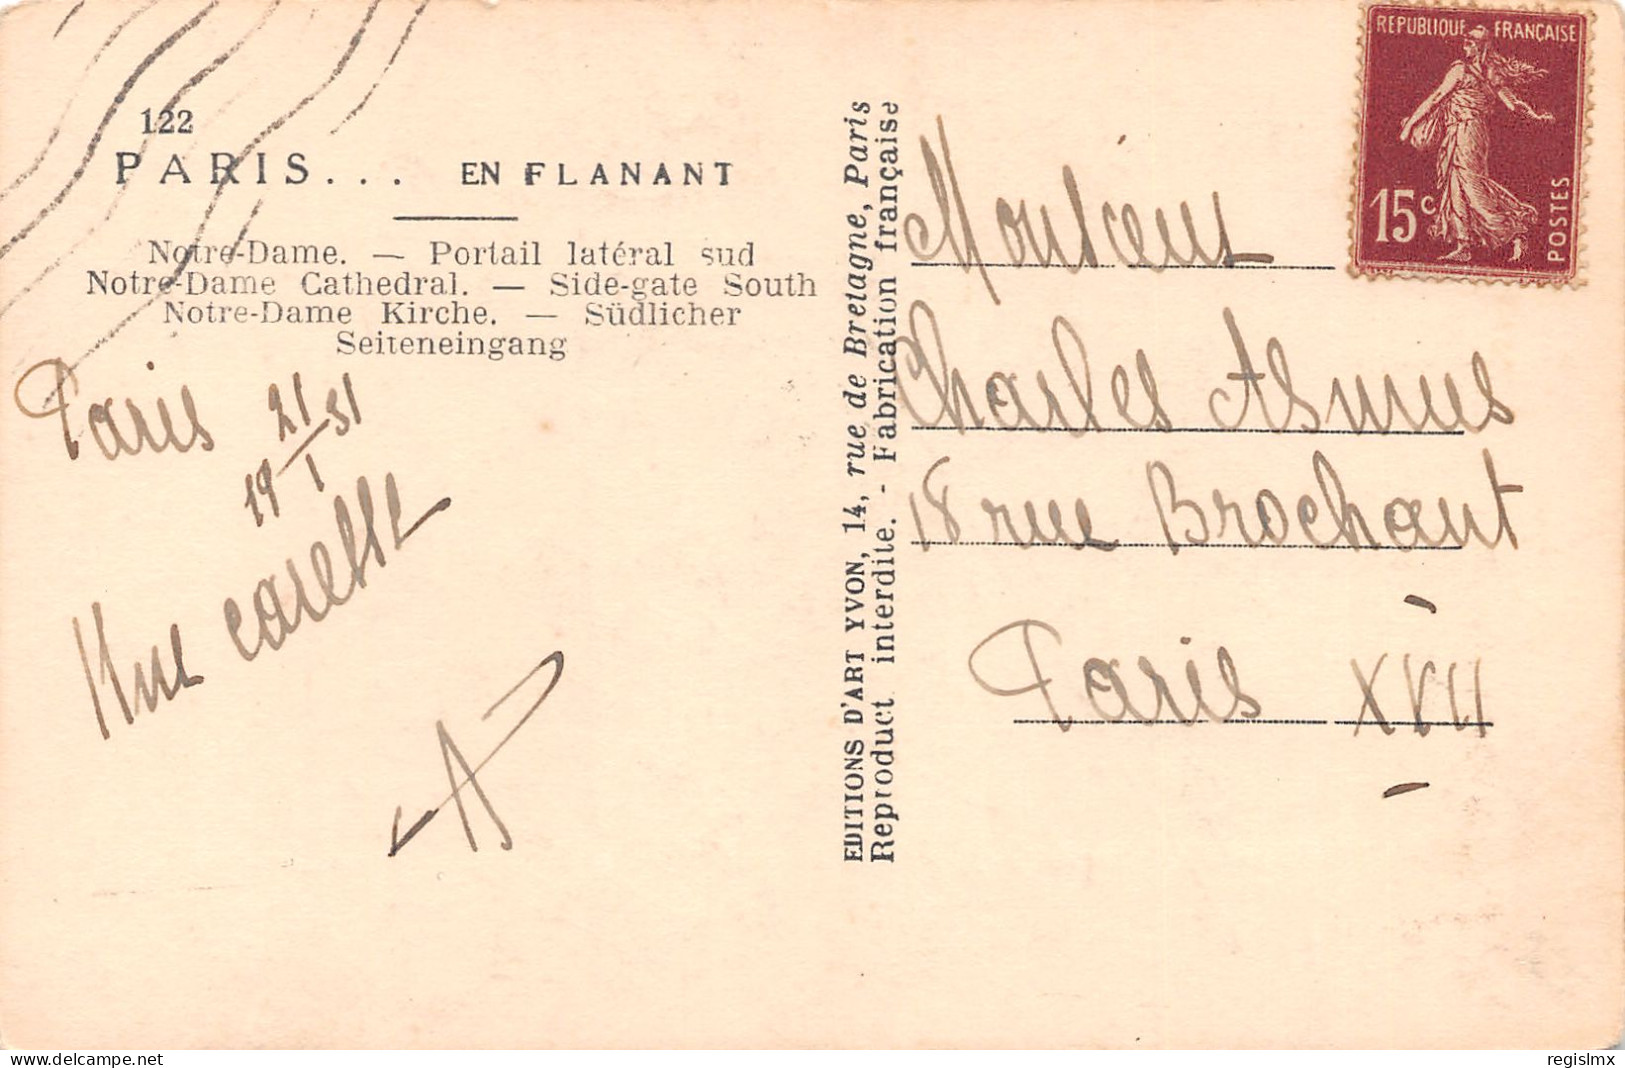 122
PARIS... EN FLANANT
Notre-Dame. — Portail latéral sud
Notre-Dame Cathedral. — Side-gate South
Notre-Dame Kirche. — Südlicher
Seiteneingang
Paris 21/I 1931
Une caresse
EDITIONS D'ART YVON, 14, rue de Bretagne, Paris
Reproduct interdite. - Fabrication française
REPUBLIQUE FRANÇAISE
15c
POSTES
Monsieur
Charles Asmus
18 rue Brochant
Paris XVII
delcampe.net
regislmx